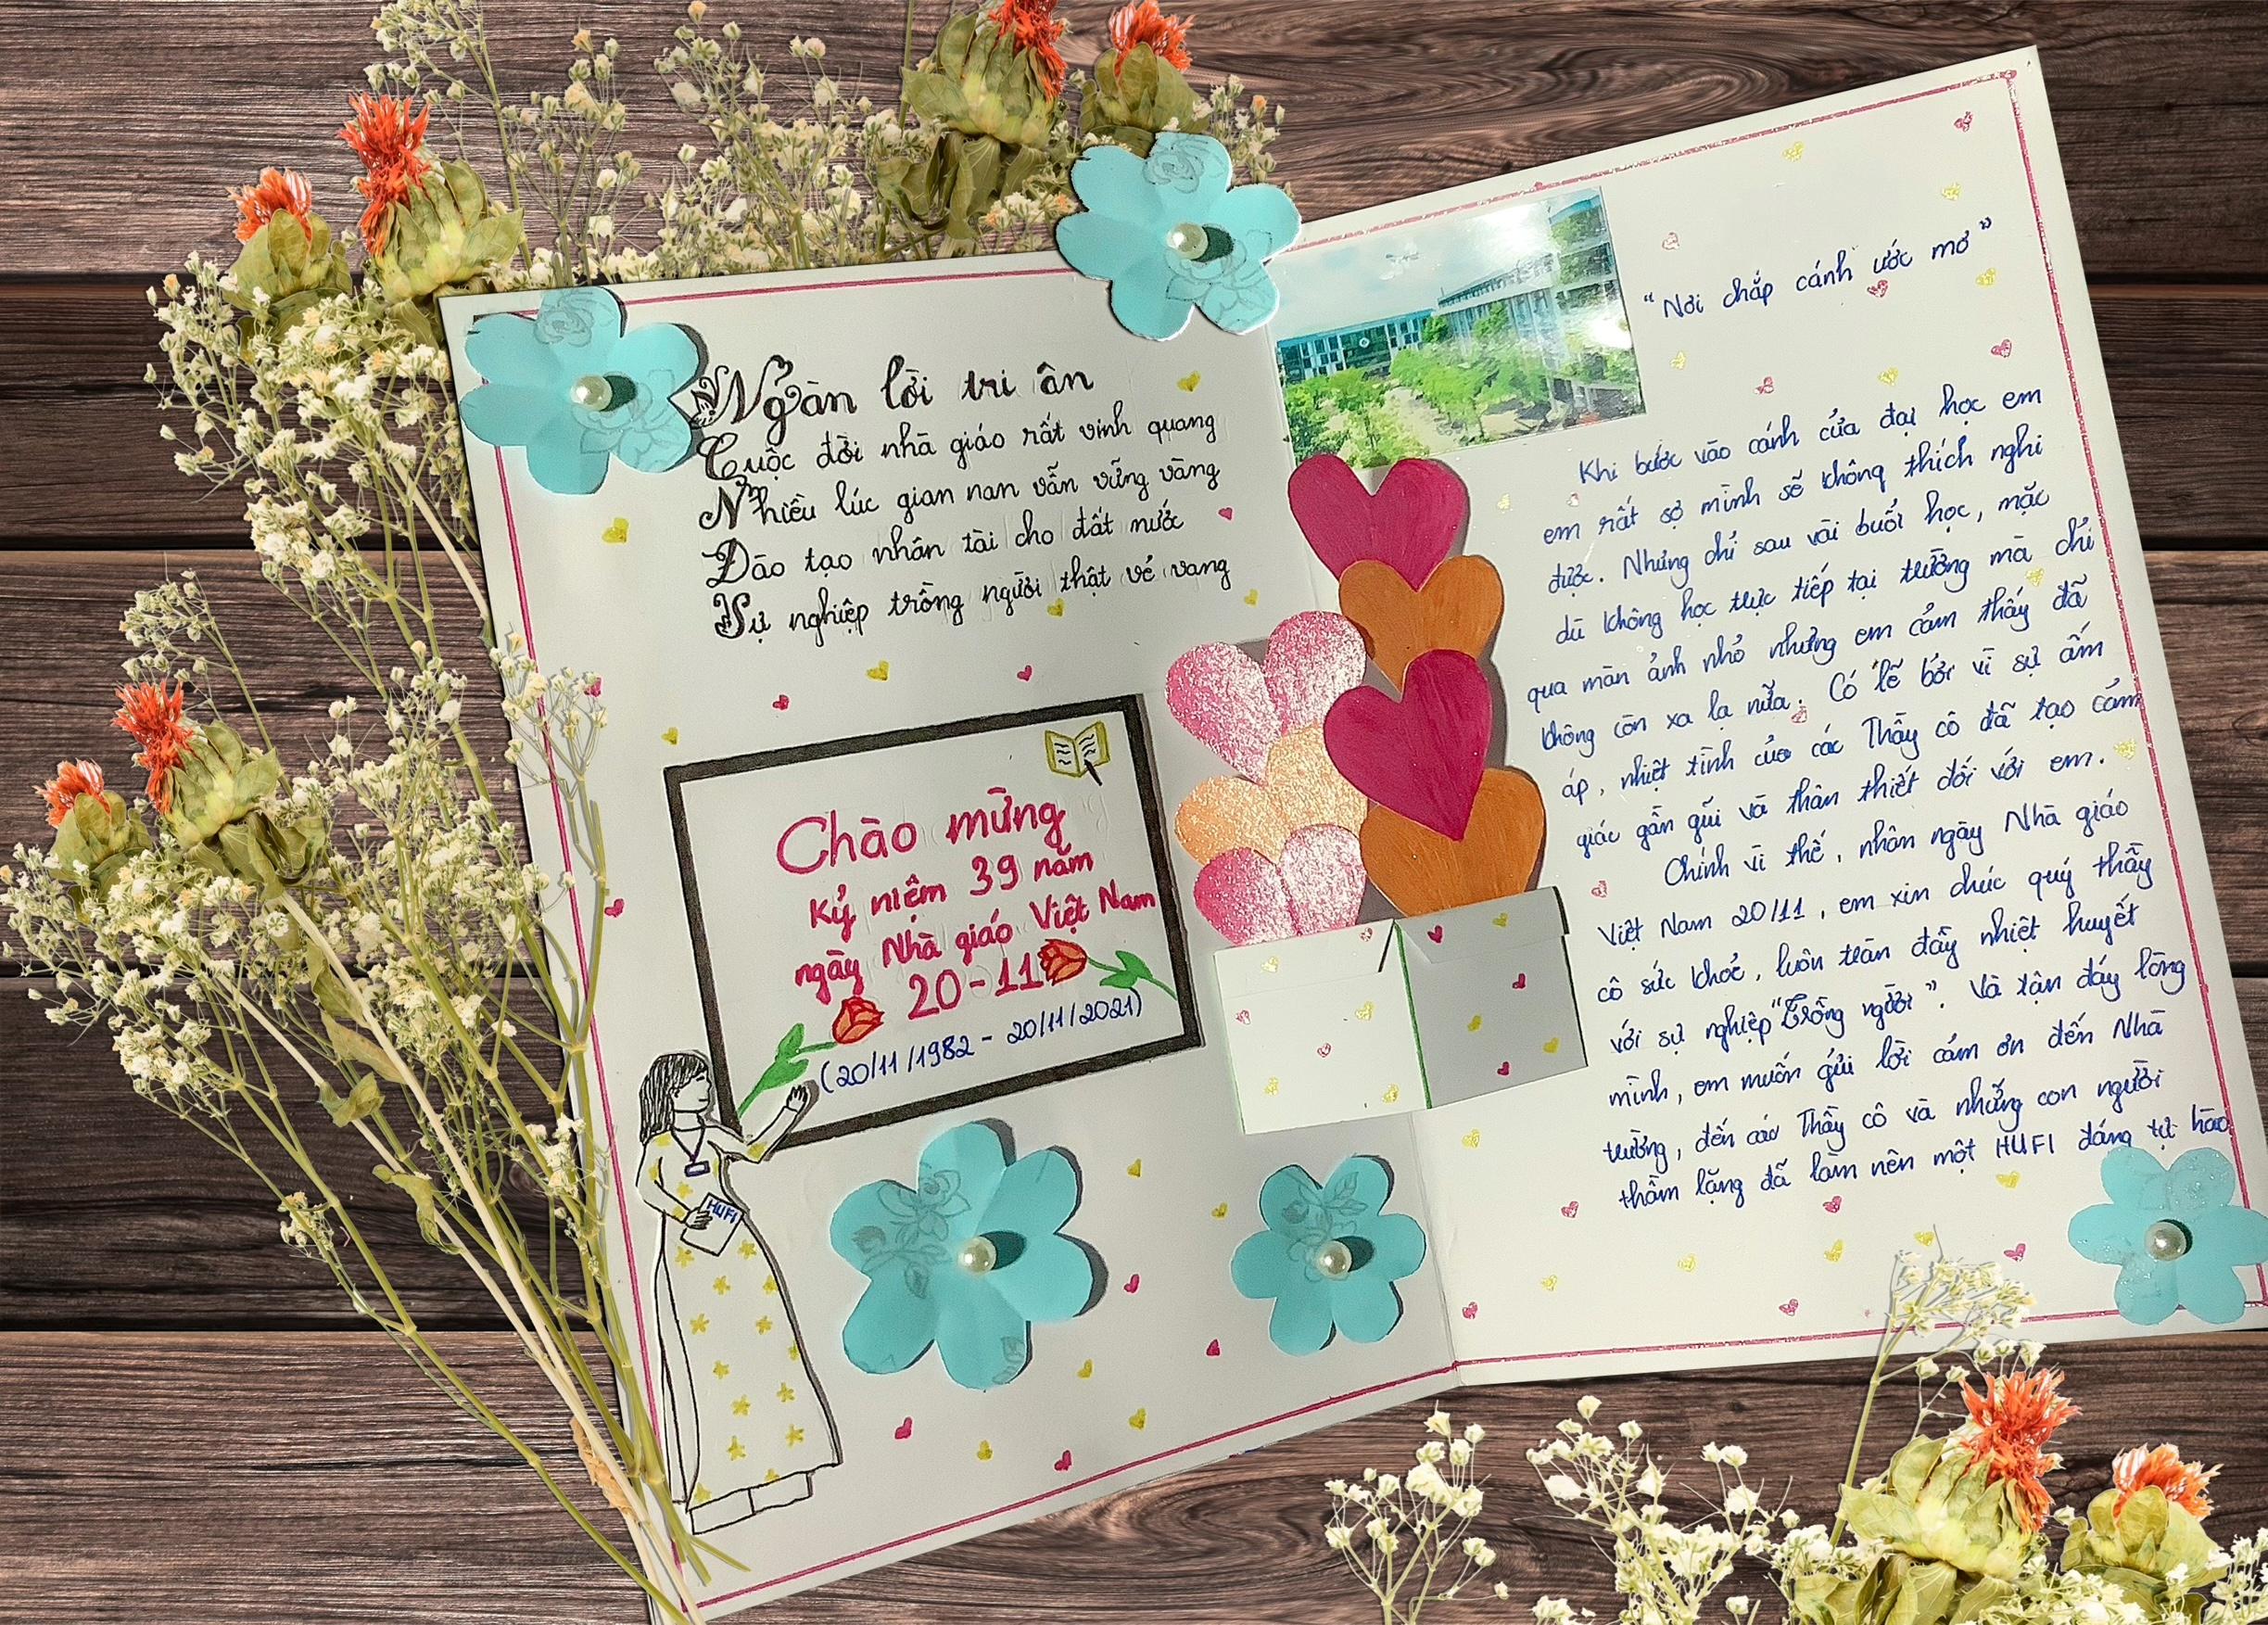 Ngàn lời tri ân
Cuộc đời nhà giáo rất vinh quang
Nhiều lúc gian nan vẫn vững vàng
Đào tạo nhân tài cho đất nước
Sự nghiệp trồng người thật vẻ vang
Chào mừng
Kỷ niệm 39 năm
ngày Nhà giáo Việt Nam
20-11
(20/11/1982 - 20/11/2021)
HUFI
"Nơi chắp cánh ước mơ"
Khi bước vào cánh cửa đại học em
em rất sợ mình sẽ không thích nghi
được. Nhưng chỉ sau vài buổi học, mặc
dù không học trực tiếp tại trường mà chỉ
qua màn ảnh nhỏ nhưng em cảm thấy đã
không còn xa lạ nữa. Có lẽ bởi vì sự ấm
áp, nhiệt tình của các Thầy cô đã tạo cảm
giác gần gũi và thân thiết đối với em.
Chính vì thế, nhân ngày Nhà giáo
Việt Nam 20/11, em xin chúc quý thầy
cô sức khoẻ, luôn tràn đầy nhiệt huyết
với sự nghiệp "Trồng người". Và tận đáy lòng
mình, em muốn gửi lời cảm ơn đến Nhà
trường, đến các Thầy cô và những con người
thầm lặng đã làm nên một HUFI đáng tự hào